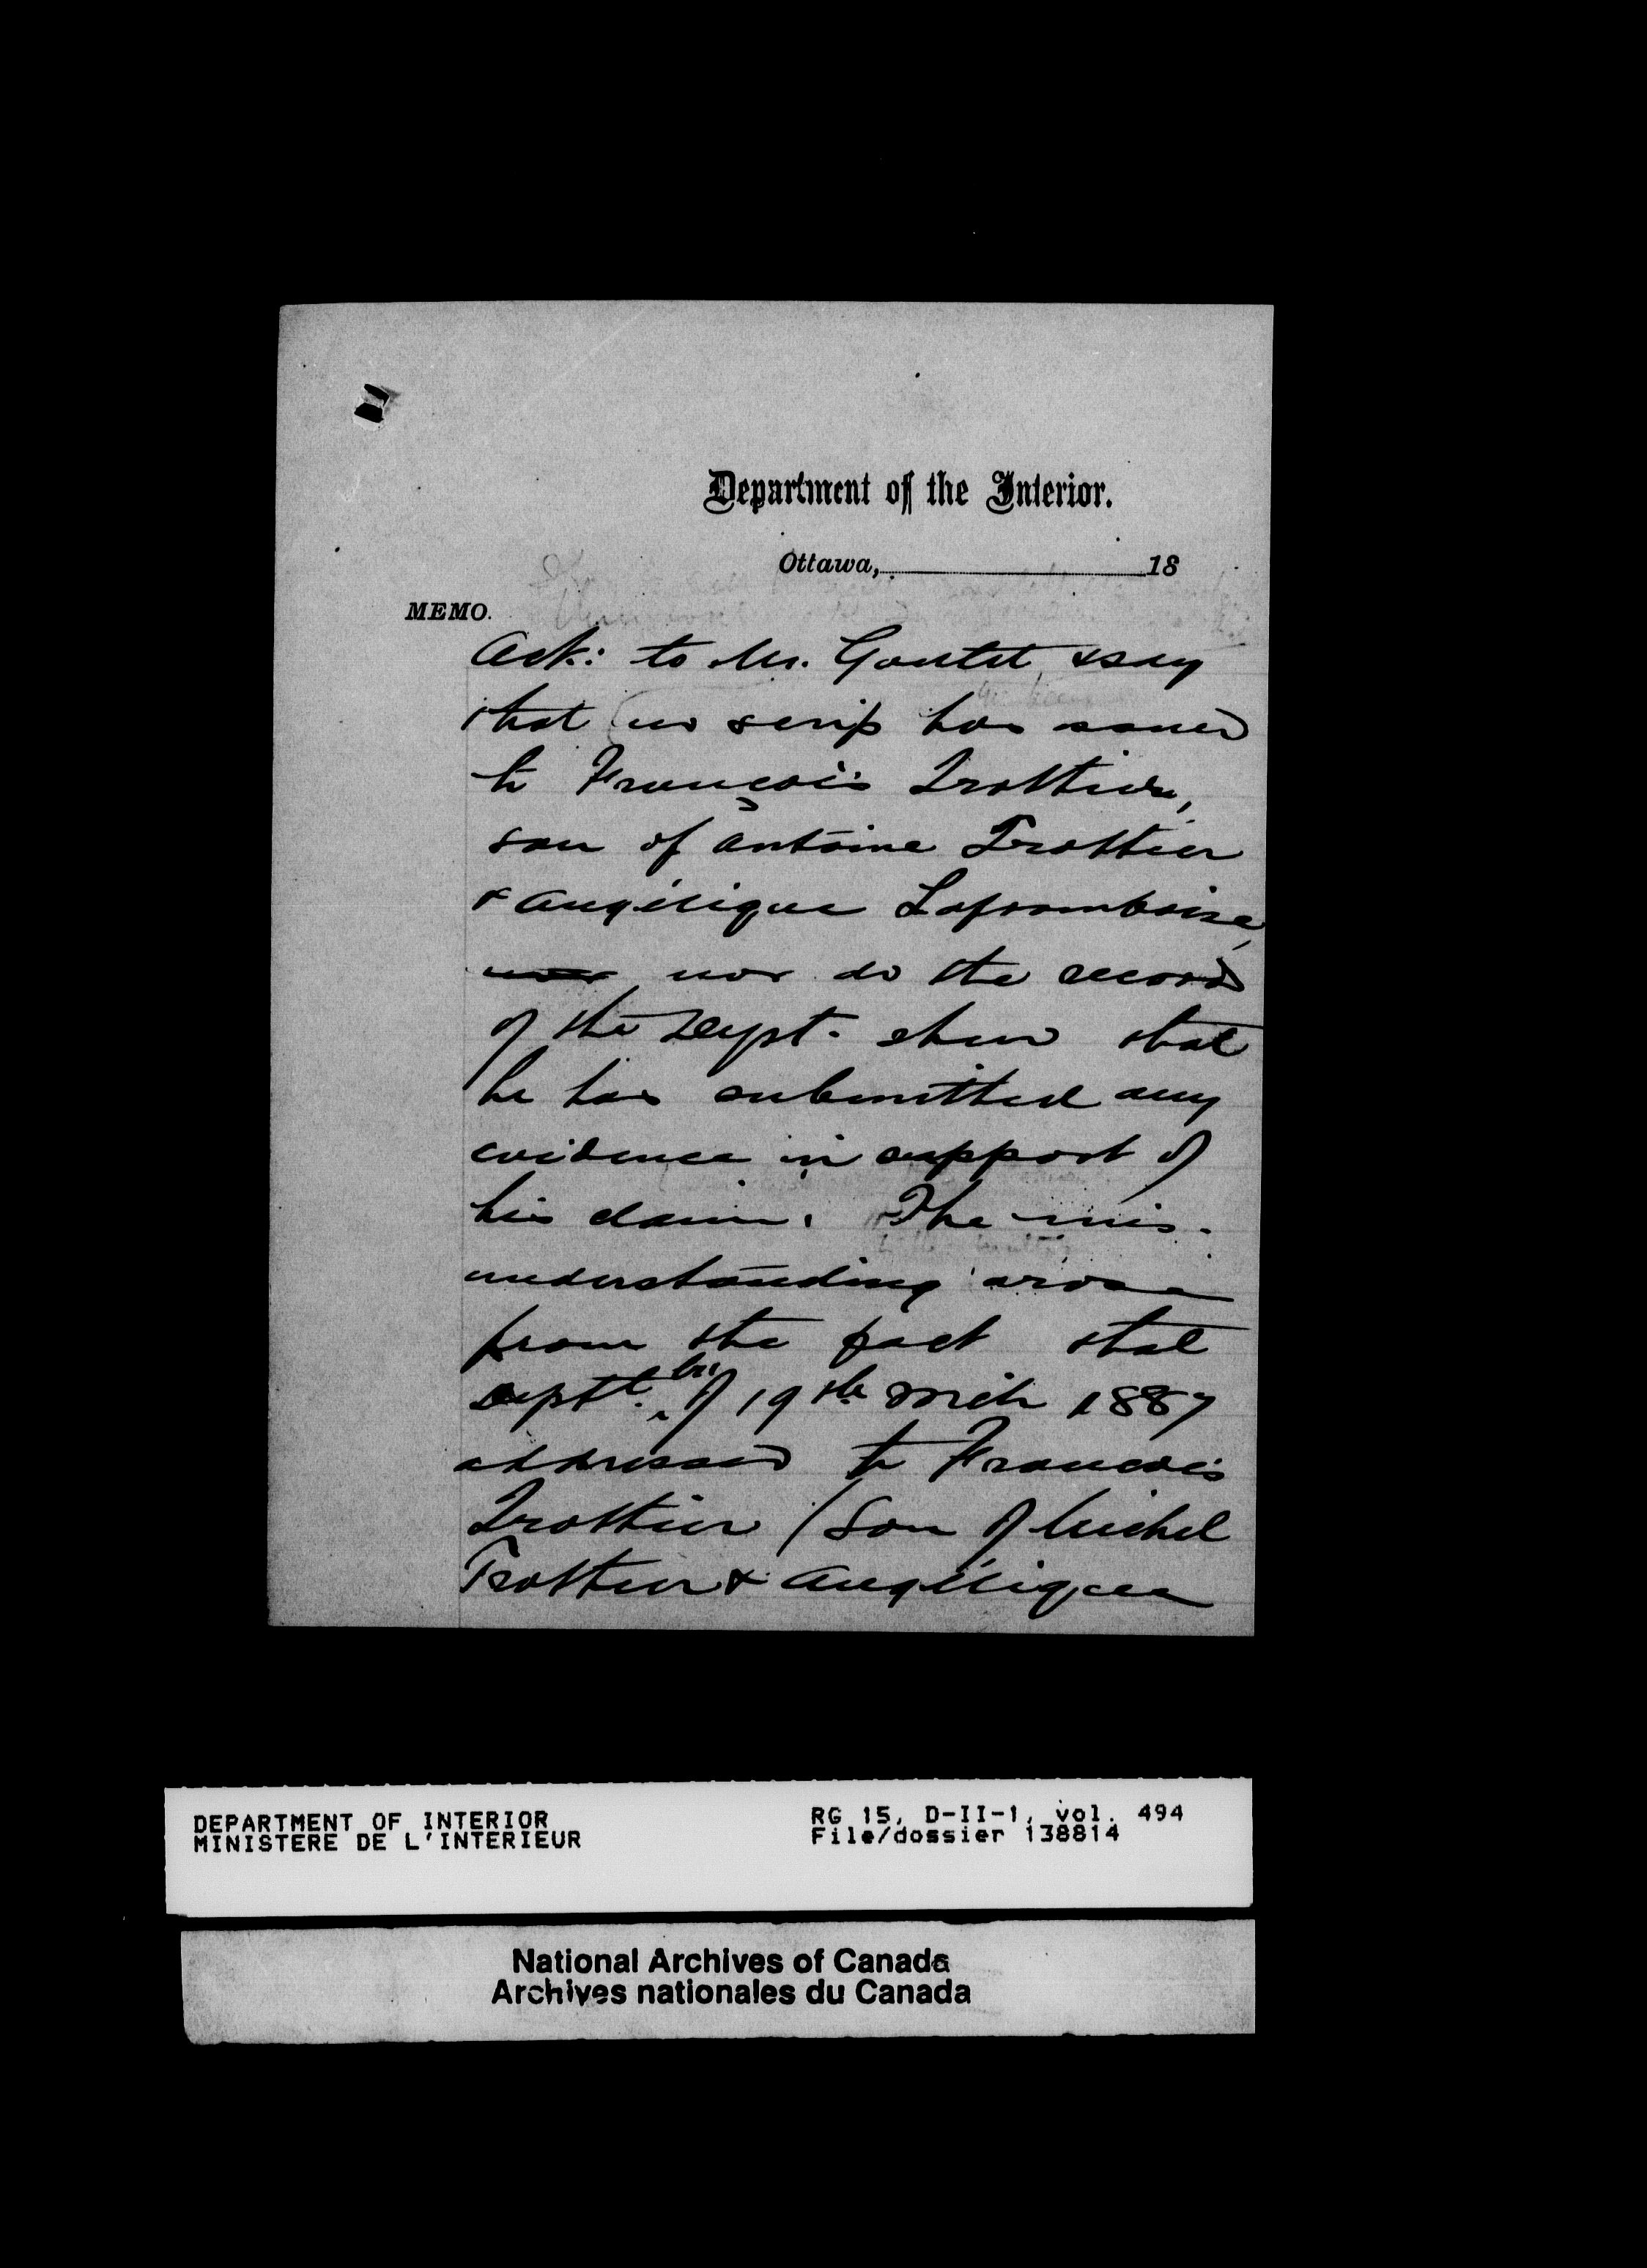 Department of the Interior.
Ottawa, 18
MEMO.
Ack: to Mr. Goulet, & say
that no scrip has issued
to François Trottier,
son of Antoine Trottier
& Angélique Laframboise,
nor nor do the records
of the Dept. shew that
he has submitted any
evidence in support of
his claim. The mis-
understanding arose
from the fact that
Deptl. ltr. of 19th Mch 1887
addressed to Francois
Trottier (Son of Michel
Trottier & Angélique
DEPARTMENT OF INTERIOR
MINISTERE DE L'INTERIEUR
RG 15, D-II-1, vol. 494
File/dossier 138814
National Archives of Canada
Archives nationales du Canada